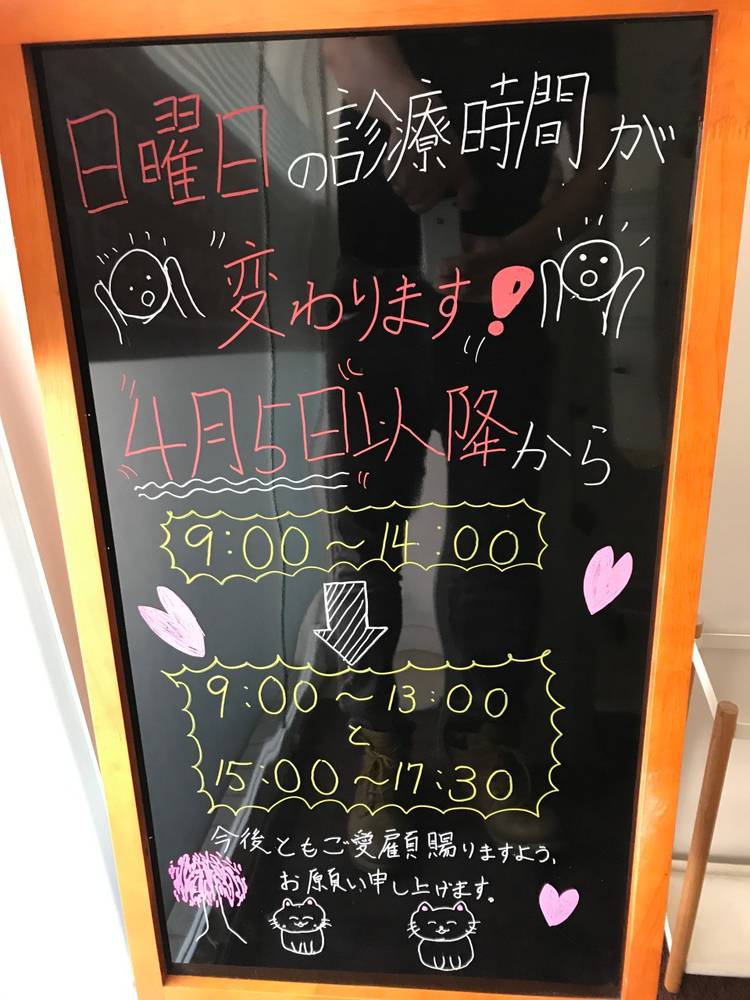 日曜日の診療時間が
変わります!
4月5日以降から
9:00～14:00
9:00～13:00
と
15:00～17:30
今後ともご愛顧賜りますよう、
お願い申し上げます。